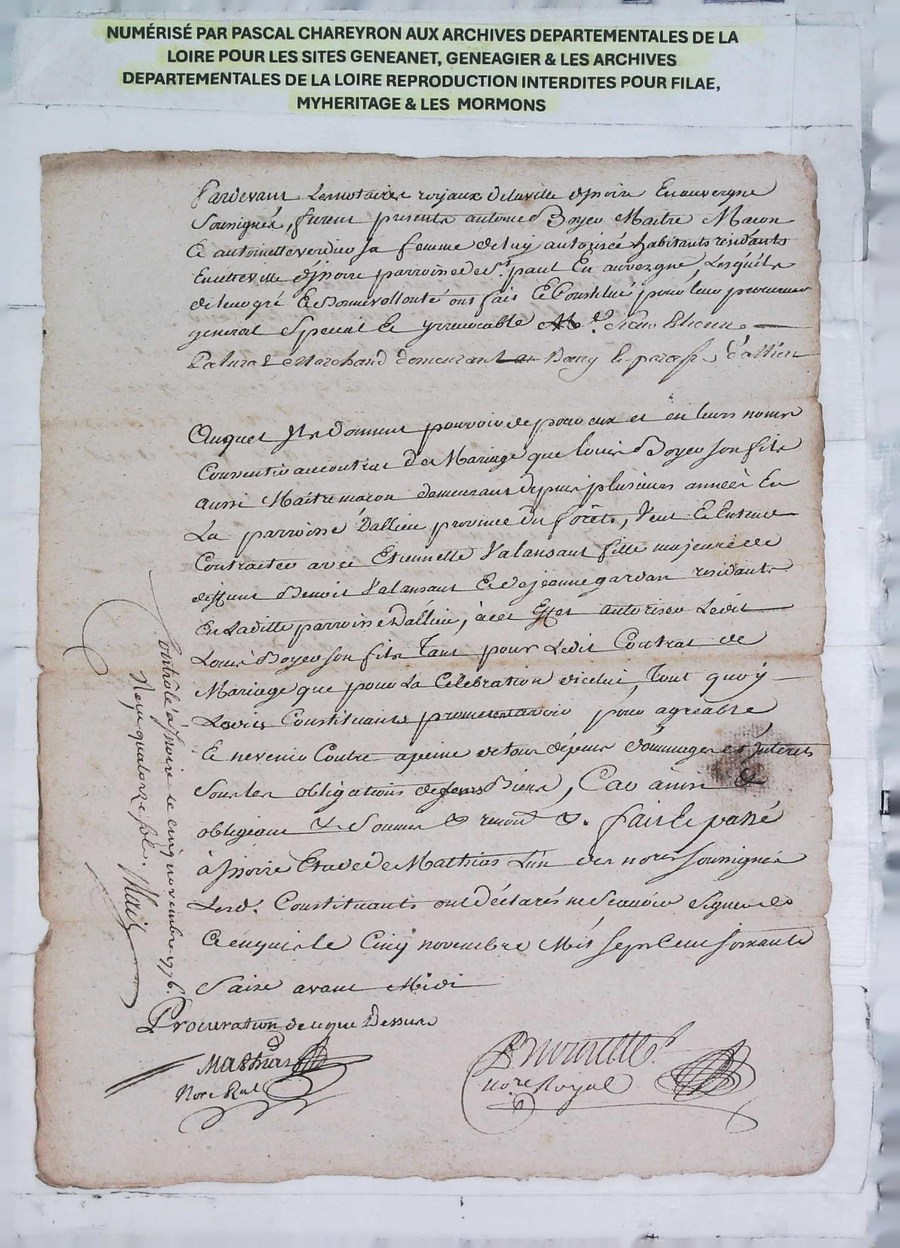 NUMÉRISÉ PAR PASCAL CHAREYRON AUX ARCHIVES DEPARTEMENTALES DE LA
LOIRE POUR LES SITES GENEANET, GENEAGIER & LES ARCHIVES
DEPARTEMENTALES DE LA LOIRE REPRODUCTION INTERDITES POUR FILAE,
MYHERITAGE & LES MORMONS
Pardevant Les notaires royaux de la ville d'Issoire En auvergne
Soussignés, furent presents antoine Boyer Maitre Macon
Et antoinette verdier sa femme de luy autorisée habitants residants
En cette ville d'Issoire parroisse de st. paul En auvergne, Lesquels
de leur gré Et Bonne vollonté ont fait Et Constitué pour leur procureur
general Special Et yrrevocable Sieur Etienne
Palural Marchand demeurant Bourg Et paroisse d'allieu
Auquel Ils Donnent pouvoir de pour eux et en leurs noms
Consentir au contrat de Mariage que Louis Boyer son fils
aussi Maitre macon demeurant depuis plusieurs années En
La parroisse Dallieu province du forêts, Veut Et Entend
Contracter avec Etiennette Valansant fille majeure de
deffunt Benoit Valansant Et de jeanne gardan residante
En Laditte parroisse Dallieu, à cet Effet autoriser Ledit
Louis Boyer son fils Tant pour Ledit Contrat de
Mariage que pour La Célébration d'icelui, Tout quoy
Lesdits Constituants promettent avoir pour agreable
Et ne venir Contre a peine de tous dépens dommages et Interets
Sous les obligations de leurs Biens, Car ainsi &
obligeant & Soumis & renont &. fait Et passé
à Issoire Etude de Mathias L'un des nores Soussignés
Lesd. Constituants ont déclarés ne Scavoir Signer de
Ce enquis Le Cinq novembre Mil Sept Cent Soixante
Saize avant Midi
Procuration de ce que Dessus
Mathias
Nore Ral
nore Royal
Contrôlé à Issoire le cinq novembre 1776.
Reçu quatorze sols.